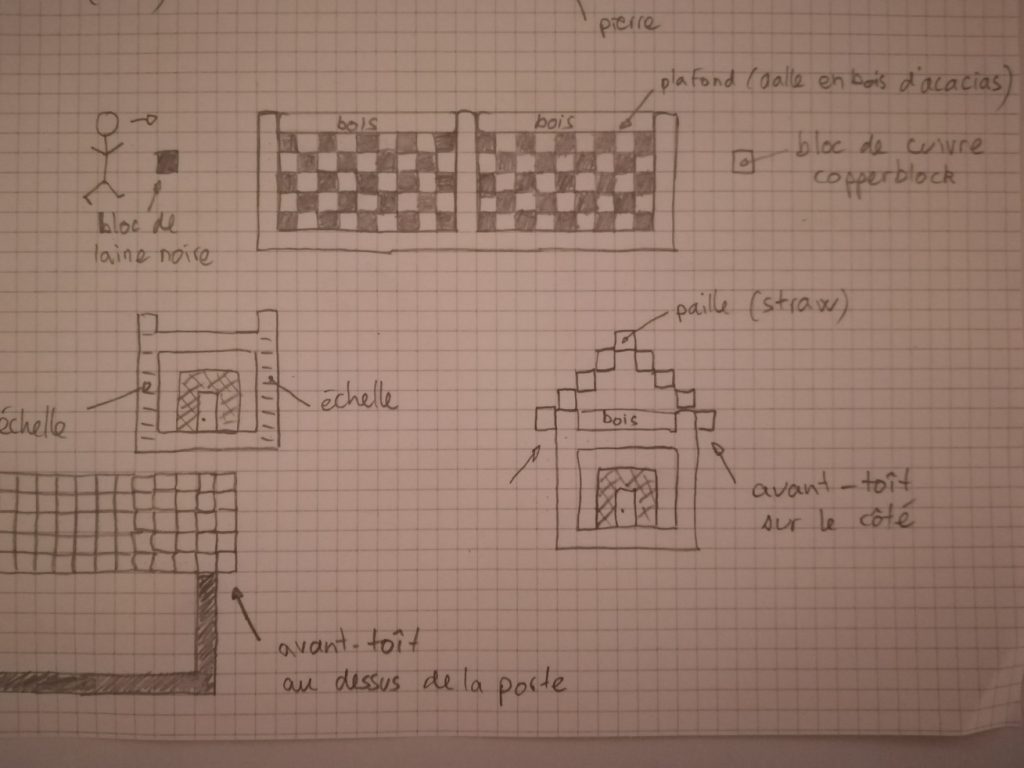 pierre
plafond (dalle en bois d'acacias)
bois
bois
bloc de cuivre
copperblock
bloc de
laine noire
paille (straw)
échelle
échelle
bois
avant-toît
sur le côté
avant-toît
au dessus de la porte